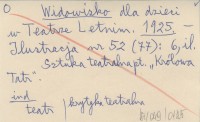 O Widowisko dla dzieci
w Teatrze Letnim. 1925. –
Ilustracja nr 52 (77): 6, il.
Sztuka teatralna pt. „Królowa
Tatr".
ind
teatr | krytyka teatralna